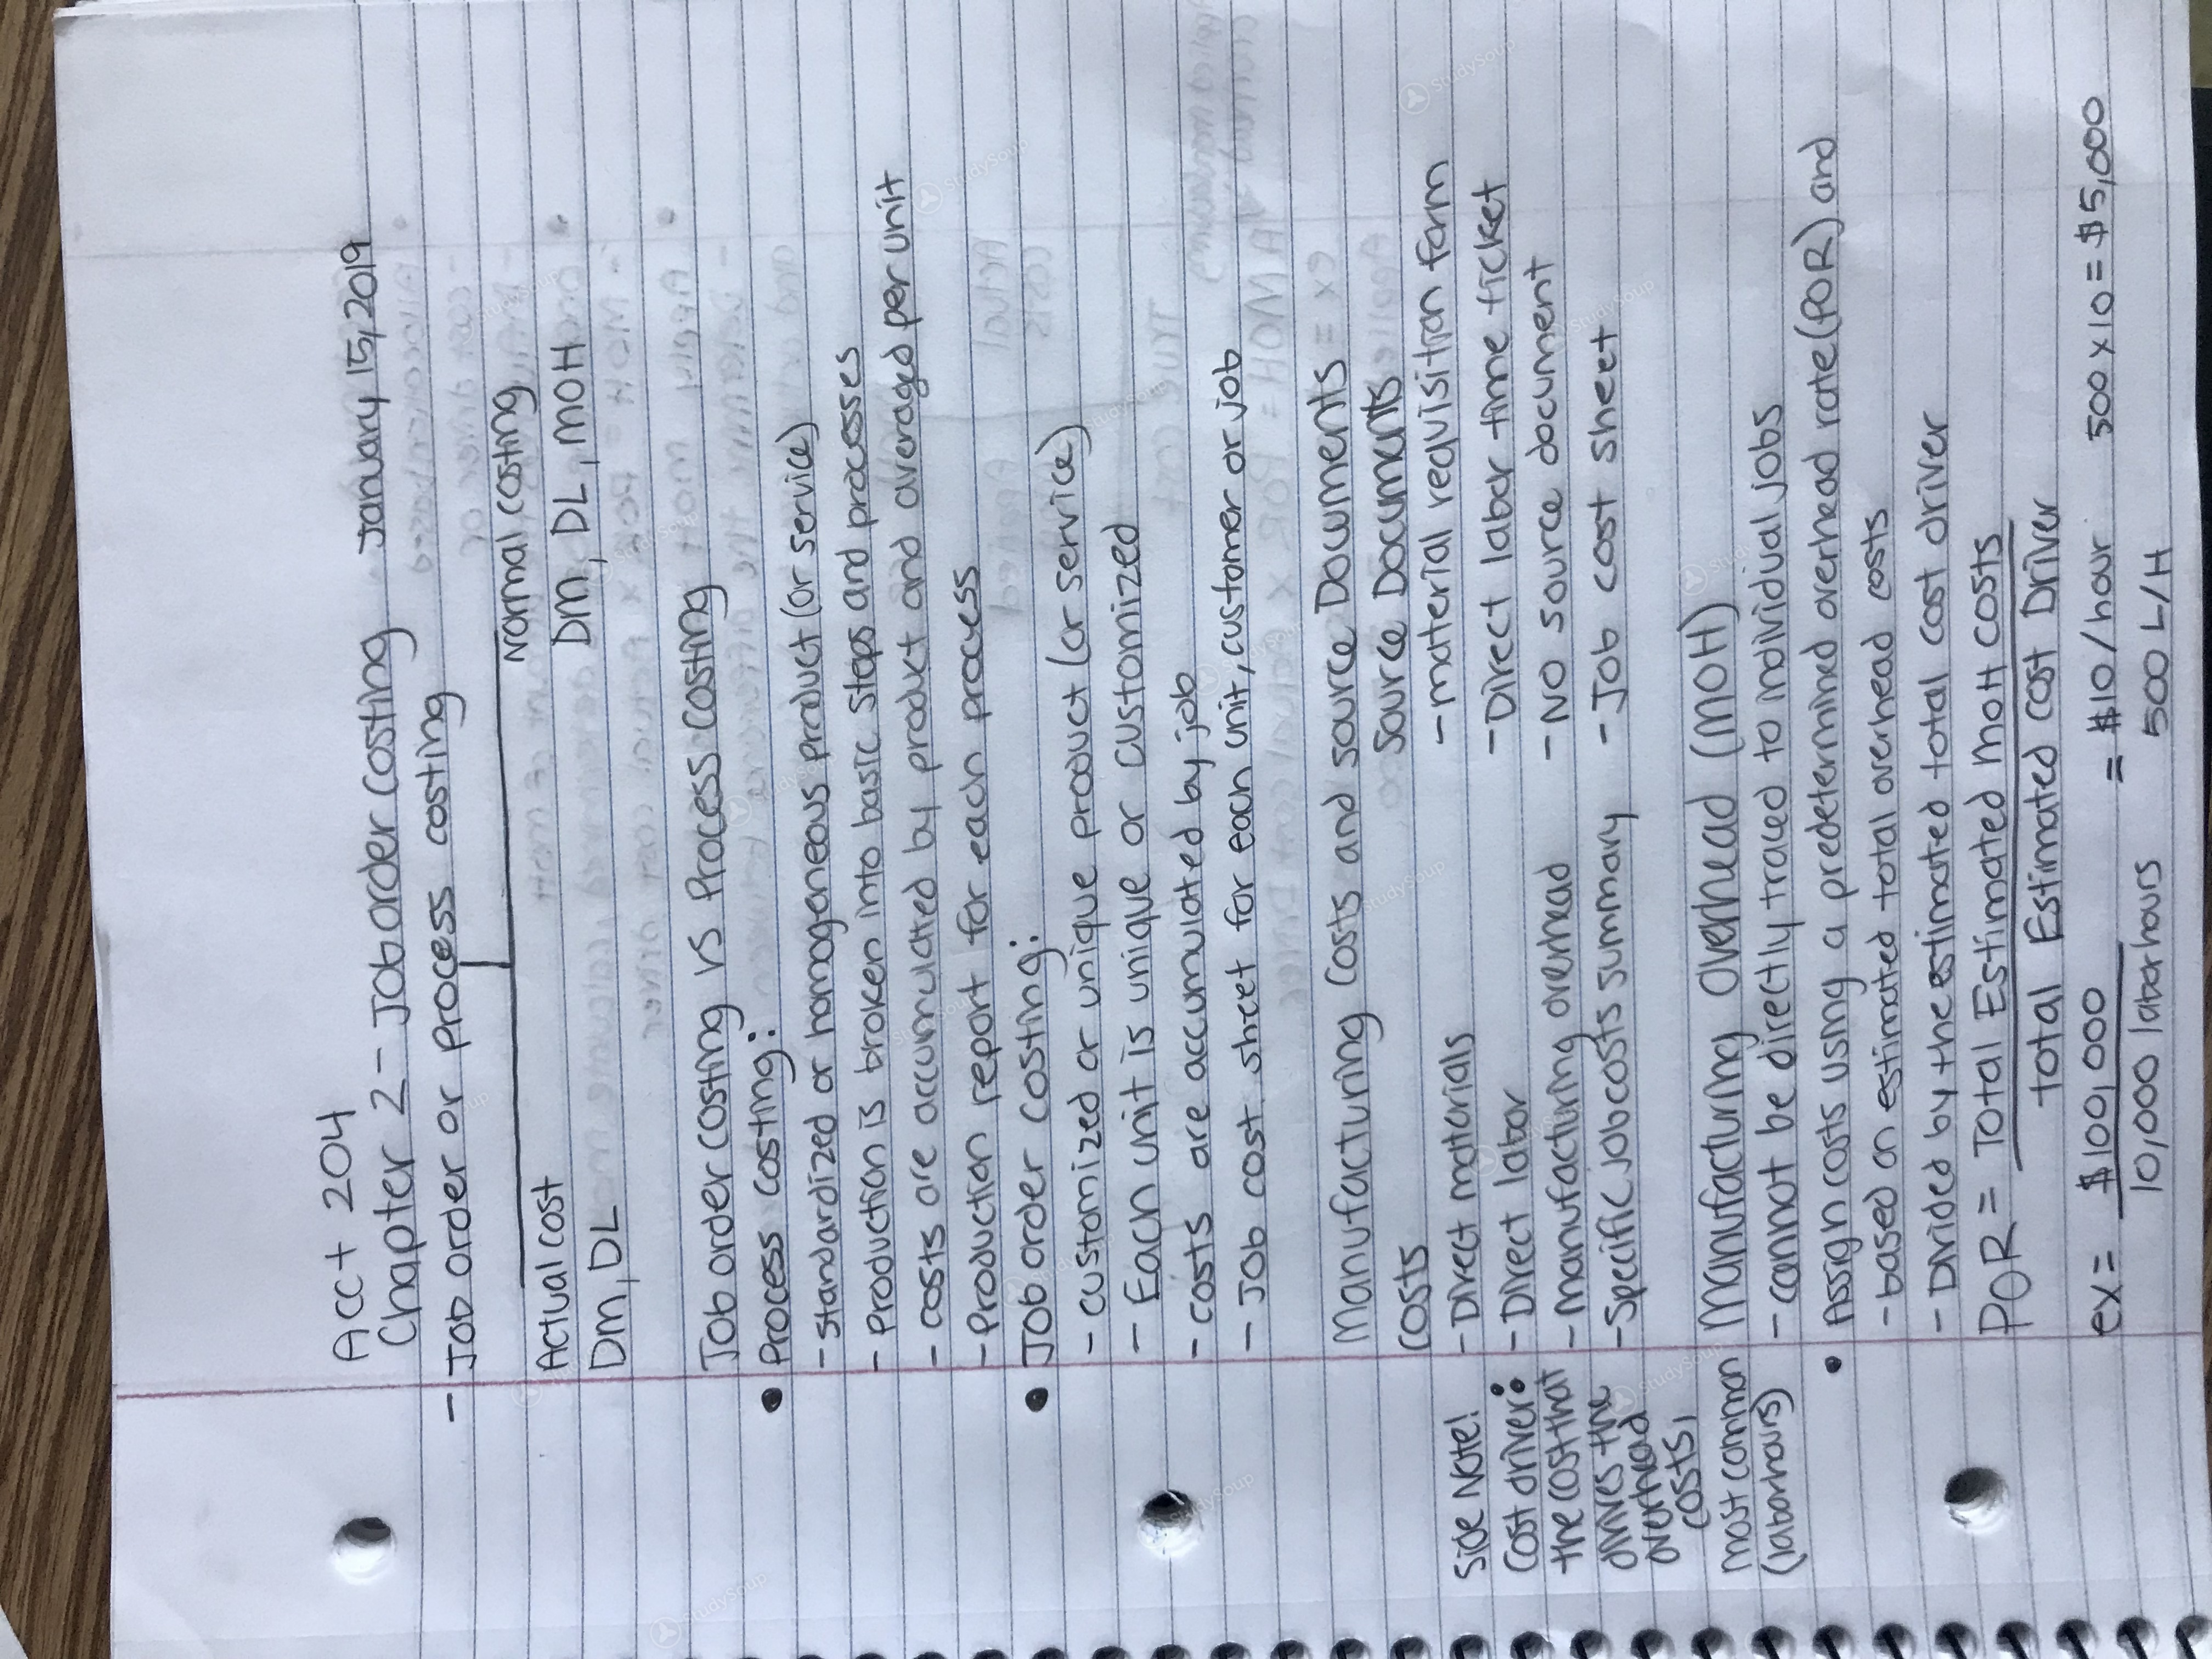 Acct 204
Chapter 2 - Job order costing January 15, 2019
- Job order or process costing
Actual cost normal costing
Dm, DL Dm, DL, MOH
Job order costing vs Process costing
• Process costing:
- standardized or homogeneous product (or service)
- Production is broken into basic steps and processes
- costs are accumulated by product and averaged per unit
- Production report for each process
• Job order costing:
- customized or unique product (or service)
- Each unit is unique or customized
- costs are accumulated by job
- Job cost sheet for each unit, customer or job
Manufacturing costs and source Documents
costs Source Documents
- Direct materials - material requisition form
- Direct labor - Direct labor time ticket
- manufacturing overhead - NO source document
- Specific job costs summary - Job cost sheet
Side Note!
Cost driver:
the cost that
drives the
overhead
costs,
most common
(labor hours)
Manufacturing overhead (MOH)
- cannot be directly traced to individual jobs
• Assign costs using a predetermined overhead rate (POR) and
- based on estimated total overhead costs
- Divided by the estimated total cost driver
POR = Total Estimated MOH costs
total Estimated cost Driver
ex = $100,000 = $10/hour 500 x 10 = $5,000
10,000 labor hours 500 L/H
StudySoup